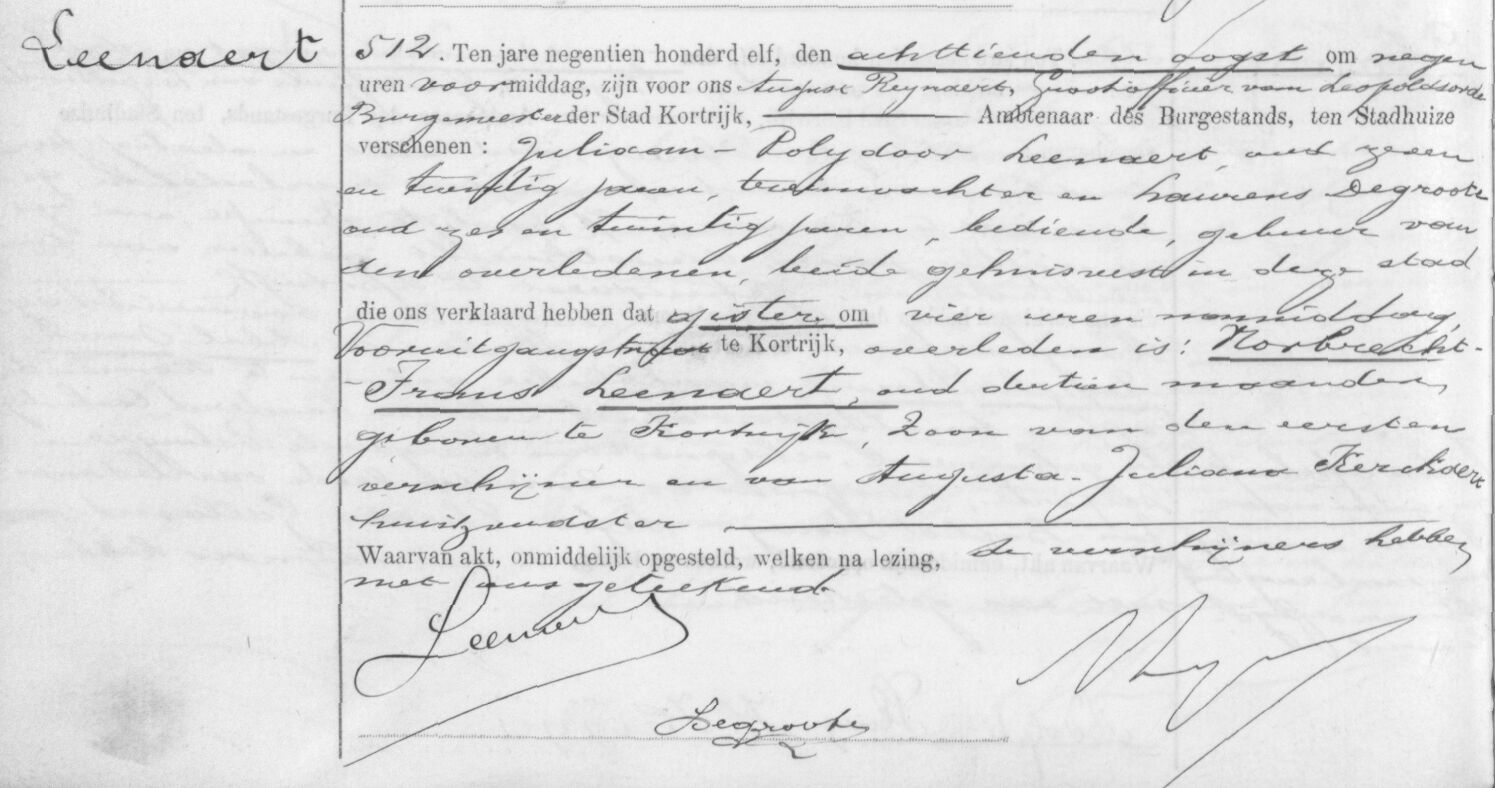 Leenaert
512. Ten jare negentien honderd elf, den achttienden oogst om negen
uren voormiddag, zijn voor ons August Reynaert, Grootofficier van Leopoldsorde
Burgemeester der Stad Kortrijk, Ambtenaar des Burgestands, ten Stadhuize
verschenen : Juliaan - Polydoor Leenaert, oud zeven
en twintig jaren, tramwachter en Laurens Degroote
oud zes en twintig jaren, bediende, gebuur van
den overledenen, beide gehuisvest in deze stad
die ons verklaard hebben dat gister, om vier uren namiddag,
Vooruitgangstraat te Kortrijk, overleden is: Norbrecht-
-Frans Leenaert, oud dertien maanden,
geboren te Kortrijk, Zoon van den eersten
verschijner en van Augusta-Juliana Kerckaert
huishoudster
Waarvan akt, onmiddelijk opgesteld, welken na lezing, de verschijners hebben
met ons geteekend.
Leenaert
Degroote